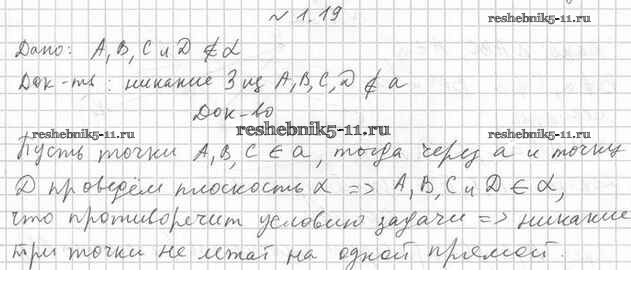 № 1.19
reshebnik5-11.ru
Дано: A, B, C и D ∉ α
Док-ть: никакие 3 из A, B, C, D ∉ a
Док-во
reshebnik5-11.ru
Пусть точки A, B, C ∈ a, тогда через a и точку
D проведём плоскость α => A, B, C и D ∈ α,
что противоречит условию задачи => никакие
три точки не лежат на одной прямой.
reshebnik5-11.ru
reshebnik5-11.ru
reshebnik5-11.ru